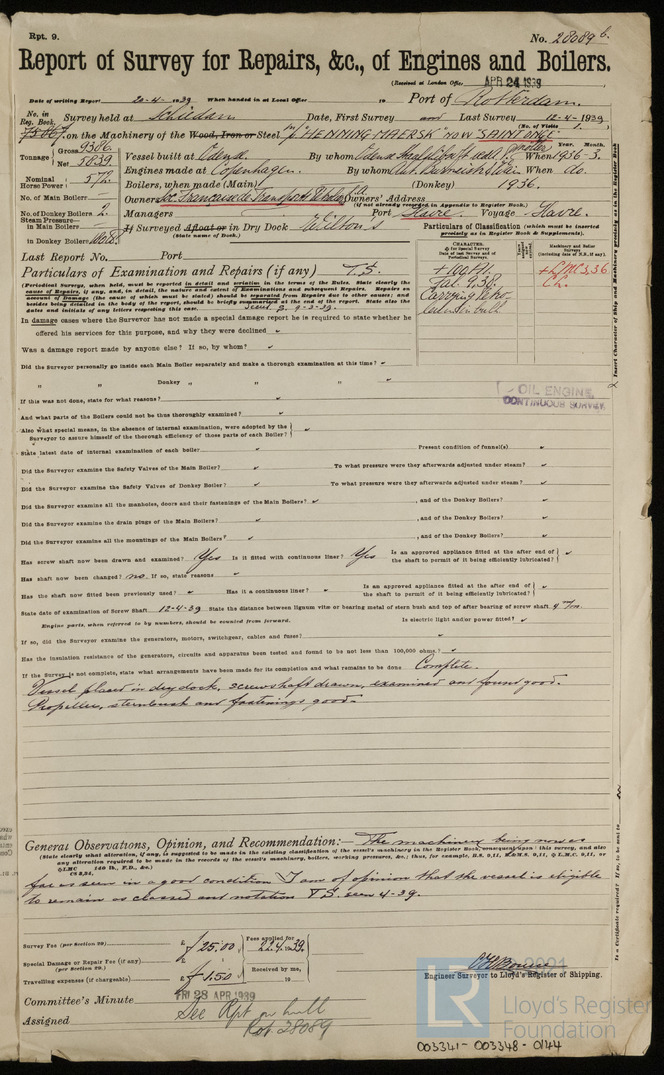 Rpt. 9.
No. 28089 b.
Report of Survey for Repairs, &c., of Engines and Boilers.
(Received at London Office APR 24 1939
Date of writing Report 20-4-1939 When handed in at Local Office 19 Port of Rotterdam.
No. in Reg. Book. Survey held at Schiedam Date, First Survey and Last Survey 12-4-1939
(No. of Visits 1.)
on the Machinery of the Wood, Iron or Steel M/S "HENNING MAERSK" NOW "SAINTONGE"
Tonnage Gross 9386 Net 5839
Vessel built at Odense. By whom Odense When 1936-3.
Year. Month.
Nominal Horse Power 572
Engines made at Copenhagen. By whom When do.
No. of Main Boilers
Boilers, when made (Main) (Donkey) 1936.
No. of Donkey Boilers 2.
Owners Soc. Française de Transports Owners' Address
(if not already recorded in Appendix to Register Book.)
Steam Pressure in Main Boilers
Managers Port Havre. Voyage Havre.
in Donkey Boilers
If Surveyed Afloat or in Dry Dock Wilton's
(State name of Dock.)
Particulars of Classification (which must be inserted precisely as in Register Book & Supplements).
Last Report No. Port
Particulars of Examination and Repairs (if any) T.S.
CHARACTER.
+100A1.
Carrying Petro.
+LMC 3,36
(Periodical Surveys, when held, must be reported in detail and seriatim in the terms of the Rules. State clearly the cause of Repairs, if any, and, in detail, the nature and extent of Examinations and subsequent Repairs. Repairs on account of Damage (the cause of which must be stated) should be separated from Repairs due to other causes; and besides being detailed in the body of the report, should be briefly summarized at the end of the report. State also the dates and initials of any letters respecting this case.
In damage cases where the Surveyor has not made a special damage report he is required to state whether he
offered his services for this purpose, and why they were declined ✓
Was a damage report made by anyone else? If so, by whom? ✓
Did the Surveyor personally go inside each Main Boiler separately and make a thorough examination at this time? ✓
" " Donkey " " " ✓
OIL ENGINE
CONTINUOUS SURVEY
If this was not done, state for what reasons? ✓
And what parts of the Boilers could not be thus thoroughly examined? ✓
Also what special means, in the absence of internal examination, were adopted by the
Surveyor to assure himself of the thorough efficiency of those parts of each Boiler? ✓
State latest date of internal examination of each boiler ✓ Present condition of funnel(s) ✓
Did the Surveyor examine the Safety Valves of the Main Boiler? ✓ To what pressure were they afterwards adjusted under steam? ✓
Did the Surveyor examine the Safety Valves of Donkey Boiler? ✓ To what pressure were they afterwards adjusted under steam? ✓
Did the Surveyor examine all the manholes, doors and their fastenings of the Main Boilers? ✓ , and of the Donkey Boilers? ✓
Did the Surveyor examine the drain plugs of the Main Boilers? ✓ , and of the Donkey Boilers? ✓
Did the Surveyor examine all the mountings of the Main Boilers? ✓ , and of the Donkey Boilers? ✓
Has screw shaft now been drawn and examined? Yes Is it fitted with continuous liner? Yes Is an approved appliance fitted at the after end of the shaft to permit of it being efficiently lubricated? ✓
Has shaft now been changed? no If so, state reasons ✓
Has the shaft now fitted been previously used? ✓ Has it a continuous liner? ✓ Is an approved appliance fitted at the after end of the shaft to permit of it being efficiently lubricated? ✓
State date of examination of Screw Shaft 12-4-39 State the distance between lignum vitæ or bearing metal of stern bush and top of after bearing of screw shaft 4 mm.
Engine parts, when referred to by numbers, should be counted from forward. Is electric light and/or power fitted? ✓
If so, did the Surveyor examine the generators, motors, switchgear, cables and fuses? ✓
Has the insulation resistance of the generators, circuits and apparatus been tested and found to be not less than 100,000 ohms? ✓
If the Survey is not complete, state what arrangements have been made for its completion and what remains to be done Complete.
Vessel placed in drydock, screwshaft drawn, examined and found good.
Propeller, sternbush and fastenings good.
General Observations, Opinion, and Recommendation:— The machinery being now as
(State clearly what alteration, if any, is suggested to be made in the existing classification of the vessel's machinery in the Register Book, consequent upon this survey, and also any alteration required to be made in the records of the vessel's machinery, boilers, working pressures, &c.; thus, for example, B.S. 9,11, B.&M.S. 9,11, L.M.C. 9,11, or
far as seen in a good condition I am of opinion that the vessel is eligible
to remain as classed and notation T.S. seen 4-39.
Survey Fee (per Section 29) £ f 25.00 Fees applied for 22.4.1939.
Special Damage or Repair Fee (if any) (per Section 29.) £ Received by me,
Travelling expenses (if chargeable) £ f 1.50 19
Engineer Surveyor to Lloyd's Register of Shipping.
Committee's Minute FRI 28 APR 1939
Assigned See Rpt on hull
Rot 28089
LR
Lloyd's Register
Foundation
003341-003348-0144